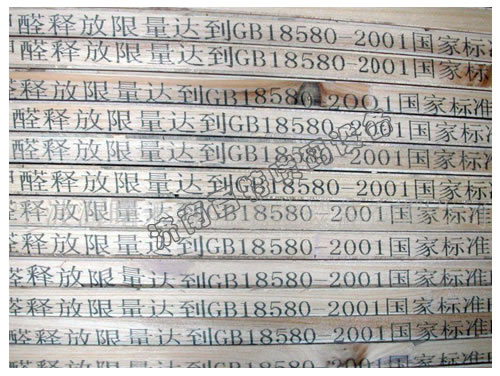 醛释放限量达到GB18580-2001国家标
醛释放限量达到GB18580-2001国家标
醛释放限量达到GB18580-2001国家标准
醛释放限量达到GB18580-2001国家标
醛释放限量达到GB18580-2001国家标
醛释放限量达到GB18580-2001国家标准
醛释放限量达到GB18580-2001国家标准
醛释放限量达到GB18580-2001国家标准
醛释放限量达到GB18580-2001国家标准
醛释放限量达到GB18580-2001国家标准
醛释放限量达到GB18580-2001国家标准
醛释放限量达到GB18580-2001国家标准